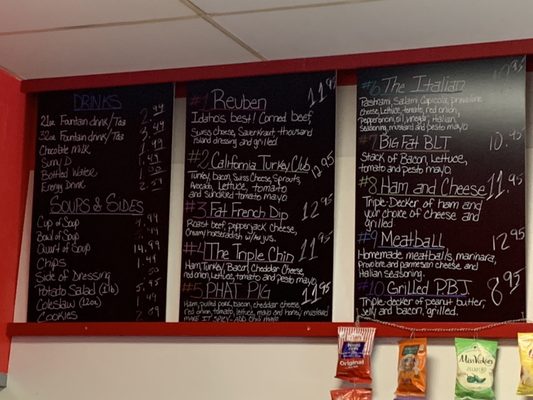 DRINKS
21oz Fountain drink/Tea 2.49
32oz Fountain drink/Tea
Chocolate milk
Sunny D
Bottled Water
Energy Drink
SOUPS & SIDES
Cup of Soup
Bowl of Soup
Quart of Soup
Chips
Side of Dressing
Potato Salad
Coleslaw (12oz)
Cookies
#1 Reuben 11.95
Idaho's best! Corned beef
Swiss cheese, Sauerkraut, thousand
Island dressing and grilled
#2 California Turkey Club 12.95
Turkey, bacon, Swiss Cheese, Sprouts,
Avocado, Lettuce, tomato
and suntomato mayo
#3 Fat French Dip 12.95
Roast beef, pepperjack cheese,
Creamy horseradish w/Au jus.
#4 The Triple Chin 11.95
Ham, Turkey, Bacon, Cheddar Cheese,
red onion, Lettuce, tomato and pesto
mayo
#5 PHAT PIG 11.95
Ham, pulled pork, bacon, cheddar cheese
red onion, tomato, Lettuce, mayo and honey mustard
#6 The Italian 10.95
Pastrami, Salami, Capicola, provolone
Cheese, Lettuce, tomato, red onion,
Pepperoncini, oil, vinegar, Italian
Seasoning, mustard and pesto mayo
#7 Big Fat BLT 10.95
Stack of Bacon, Lettuce,
tomato and pesto mayo
#8 Ham and Cheese 11.95
Triple-Decker of ham and
your choice of cheese and
grilled
#9 Meatball 12.95
Homemade meatballs, marinara,
Provolone and parmesan cheese and
Italian Seasoning.
#10 Grilled PBJ 8.95
Triple decker of peanut butter,
jelly and bacon, grilled.
Original
Miss Vickie's